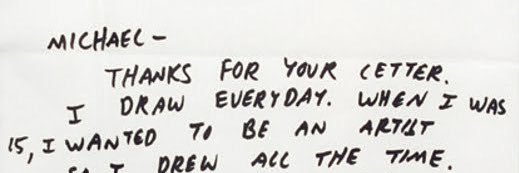 MICHAEL —
THANKS FOR YOUR LETTER.
I DRAW EVERYDAY. WHEN I WAS
15, I WANTED TO BE AN ARTIST
SO I DREW ALL THE TIME.